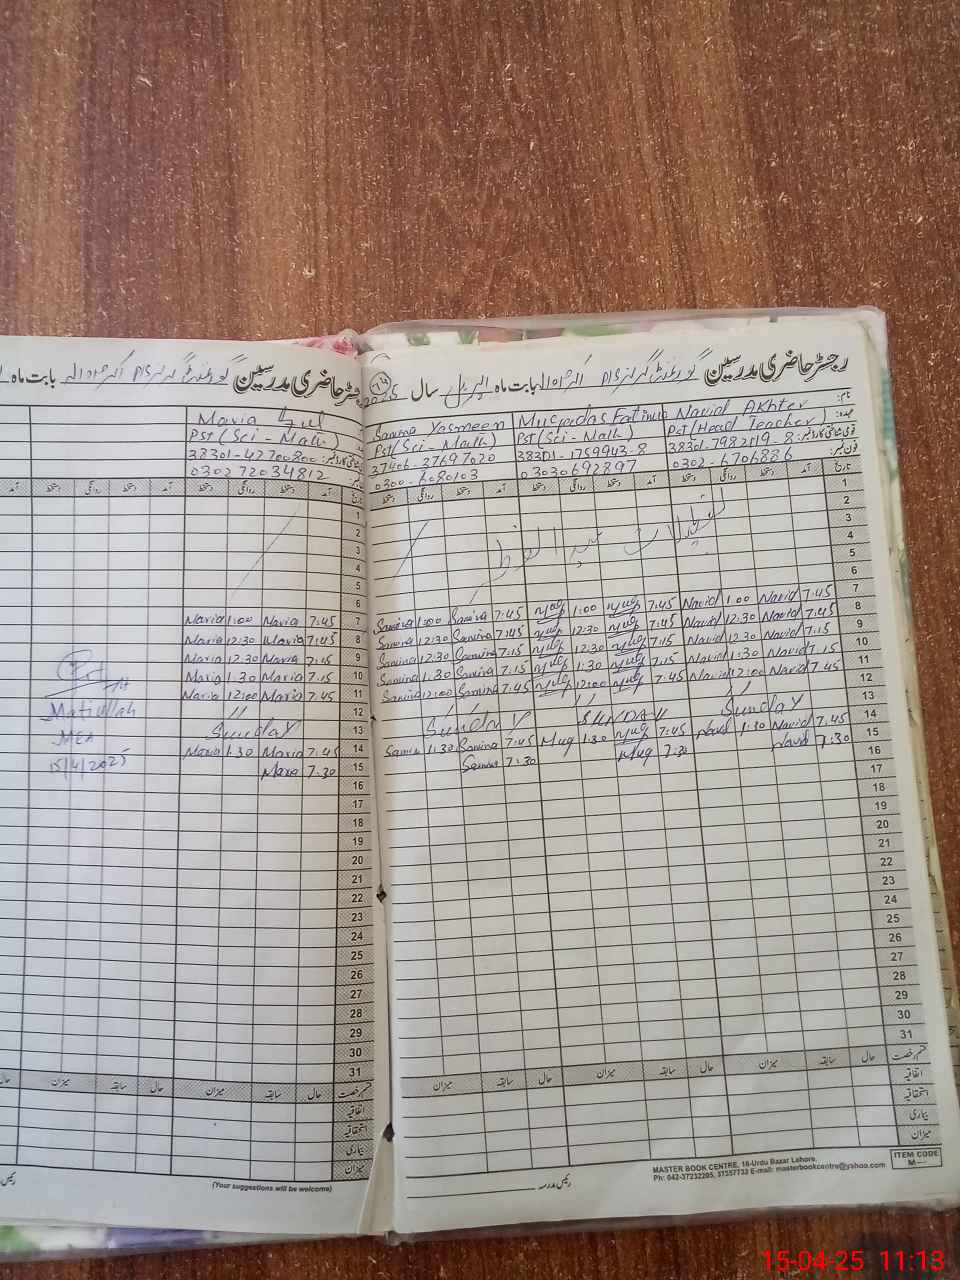 رجسٹر حاضری مدرسین گورنمنٹ گرلز P/S بابت ماہ اپریل سال 2025
نام:
Navid Akhter
Fatima
Samina Yasmeen
عہدہ:
Pst (Head Teacher)
Pst (Sci - Math)
Pst (Sci - Math)
قومی شناختی کارڈ نمبر:
38301-1759943-8
37406-37697020
فون نمبر:
0302-6706886
03030692897
0300-6080103
تاریخ آمد دستخط روانگی دستخط آمد دستخط روانگی دستخط آمد دستخط روانگی دستخط
1
2
3
4
5
6
7 7:45 Navid 1:00 Navid 7:45 1:00 7:45 Samina 1:00 Samina
8 7:45 Navid 12:30 Navid 7:45 12:30 7:45 Samina 12:30 Samina
9 7:15 Navid 12:30 Navid 7:15 12:30 7:15 Samina 12:30 Samina
10 7:15 Navid 1:30 Navid 7:15 1:30 7:15 Samina 1:30 Samina
11 7:45 Navid 12:00 Navid 7:45 12:00 7:45 Samina 12:00 Samina
12 // // //
13 Sunday SUNDAY Sunday
14 7:45 Navid 1:30 Navid 7:45 1:30 Mug 7:45 Samina 1:30 Samina
15 7:30 Navid 7:30 Mug 7:30 Samina
16
17
18
19
20
21
22
23
24
25
26
27
28
29
30
31
قسم رخصت حال سابقہ میزان حال سابقہ میزان حال سابقہ میزان
اتفاقیہ
استحقاقیہ
بیماری
میزان
رئیس مدرسہ
MASTER BOOK CENTRE, 16-Urdu Bazar Lahore.
Ph: 042-37232205, 37357732 E-mail: masterbookcentre@yahoo.com
ITEM CODE
رجسٹر حاضری مدرسین گورنمنٹ گرلز P/S بابت ماہ
Maria Gul
Pst (Sci - Math)
38301-42700800
0302 72034812
تاریخ آمد دستخط روانگی دستخط آمد دستخط روانگی دستخط
1
2
3
4
5
6
7 7:45 Maria 1:00 Maria
8 7:45 Maria 12:30 Maria
9 7:15 Maria 12:30 Maria
10 7:15 Maria 1:30 Maria
11 7:45 Maria 12:00 Maria
12 //
13 Sunday
14 7:45 Maria 1:30 Maria
15 7:30 Maria
Matiullah
MEA
15/4/2025
16
17
18
19
20
21
22
23
24
25
26
27
28
29
30
31
قسم رخصت حال سابقہ میزان حال سابقہ میزان حال
اتفاقیہ
استحقاقیہ
بیماری
میزان
(Your suggestions will be welcome)
15-04-25 11:13